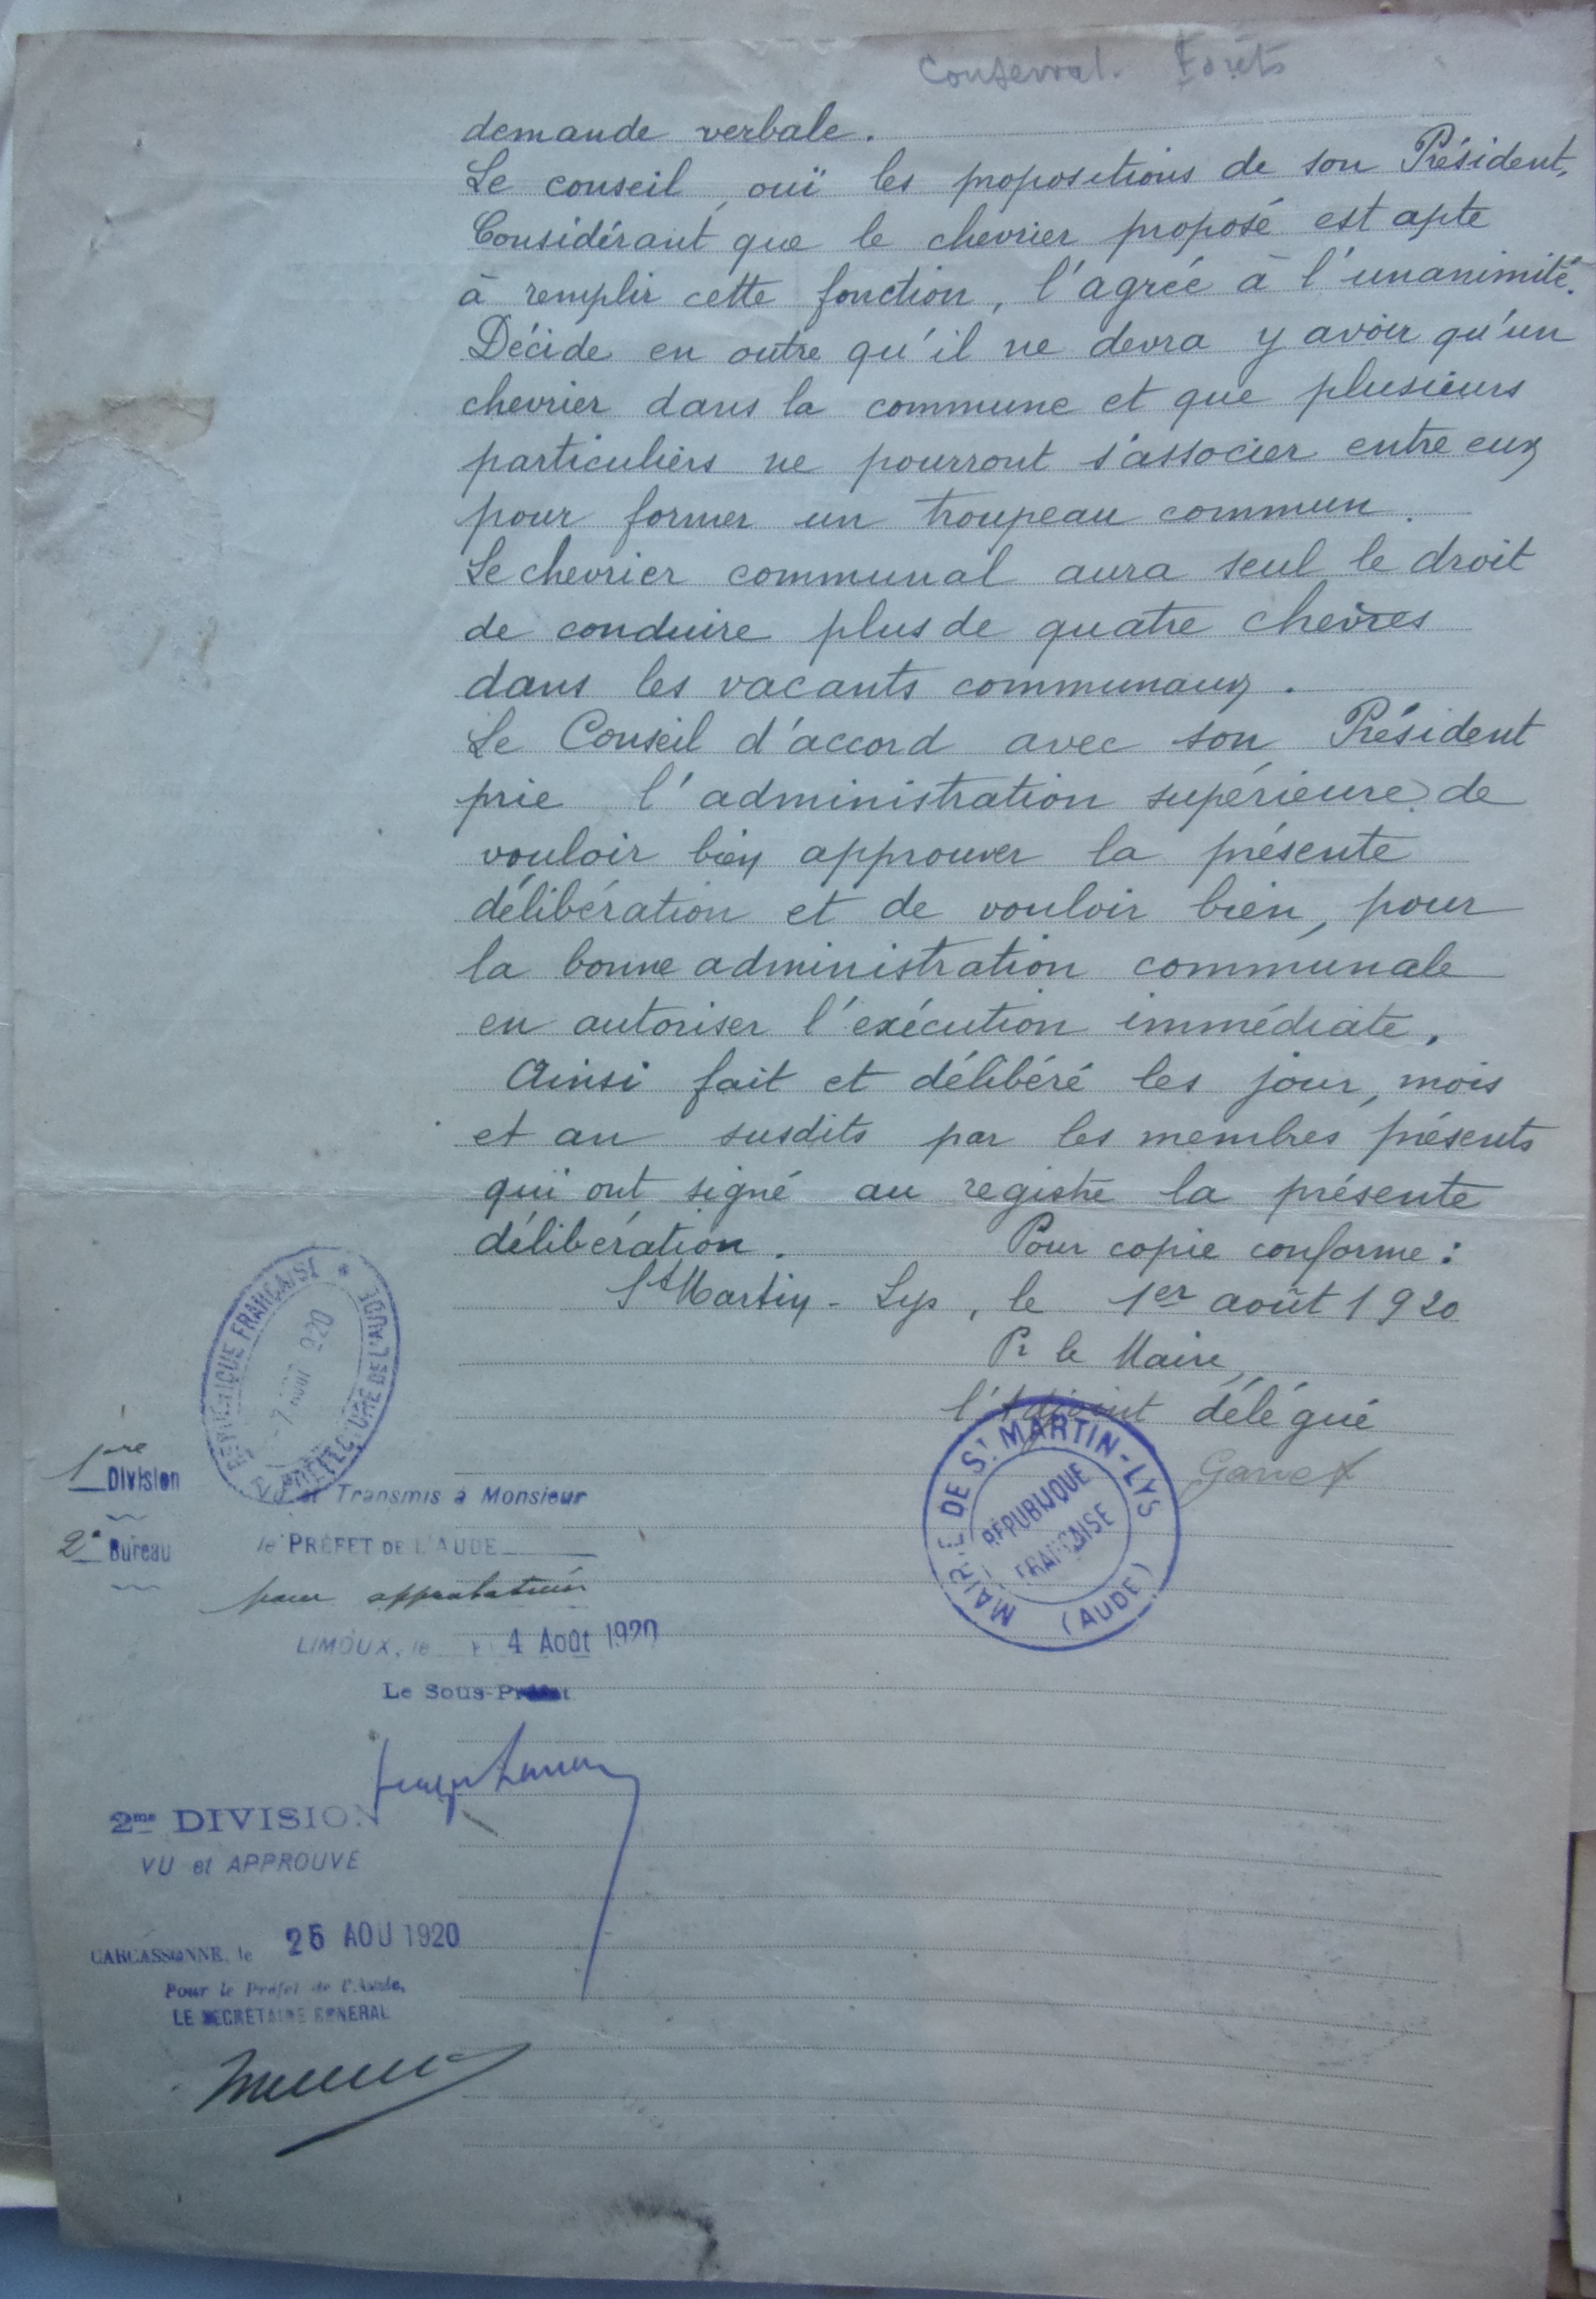 Conservat. Forêts
demande verbale.
Le conseil, ouï les propositions de son Président,
Considérant que le chevrier proposé est apte
à remplir cette fonction, l'agrée à l'unanimité.
Décide en outre qu'il ne devra y avoir qu'un
chevrier dans la commune et que plusieurs
particuliers ne pourront s'associer entre eux
pour former un troupeau commun.
Le chevrier communal aura seul le droit
de conduire plus de quatre chèvres
dans les vacants communaux.
Le Conseil d'accord avec son Président
prie l'administration supérieure de
vouloir bien approuver la présente
délibération et de vouloir bien, pour
la bonne administration communale
en autoriser l'exécution immédiate.
Ainsi fait et délibéré les jour, mois
et an susdits par les membres présents
qui ont signé au registre la présente
délibération. Pour copie conforme :
St Martin-Lys, le 1er août 1920
Pr le Maire,
l'Adjoint délégué
MAIRIE DE St MARTIN-LYS
RÉPUBLIQUE
FRANÇAISE
(AUDE)
RÉPUBLIQUE FRANÇAISE *
PRÉFECTURE DE L'AUDE
7 AOUT 1920
1re Division
2e Bureau
VU et Transmis à Monsieur
le PRÉFET DE L'AUDE
pour approbation
LIMOUX, le 4 Août 1920
Le Sous-Préfet
2me DIVISION
VU et APPROUVÉ
CARCASSONNE, le 26 AOU 1920
Pour le Préfet de l'Aude,
LE SECRÉTAIRE GÉNÉRAL